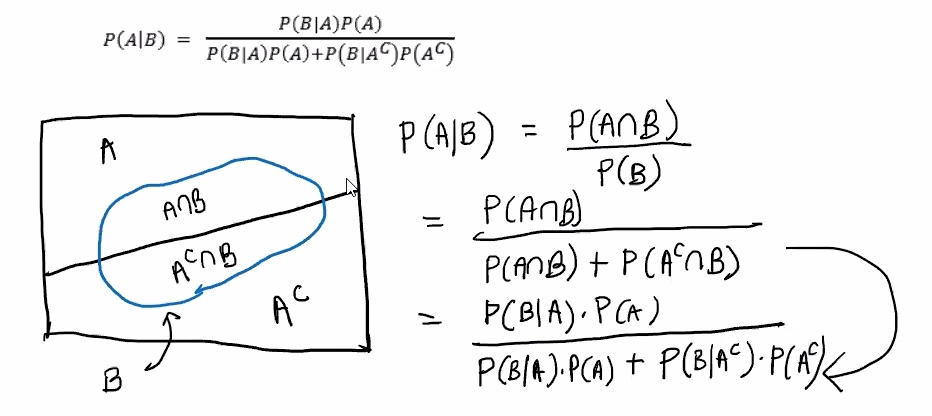 P(A|B) = P(B|A)P(A) / P(B|A)P(A)+P(B|Aᶜ)P(Aᶜ)
A
A∩B
Aᶜ∩B
Aᶜ
B
P(A|B) = P(A∩B) / P(B)
= P(A∩B) / P(A∩B) + P(Aᶜ∩B)
= P(B|A)·P(A) / P(B|A)·P(A) + P(B|Aᶜ)·P(Aᶜ)